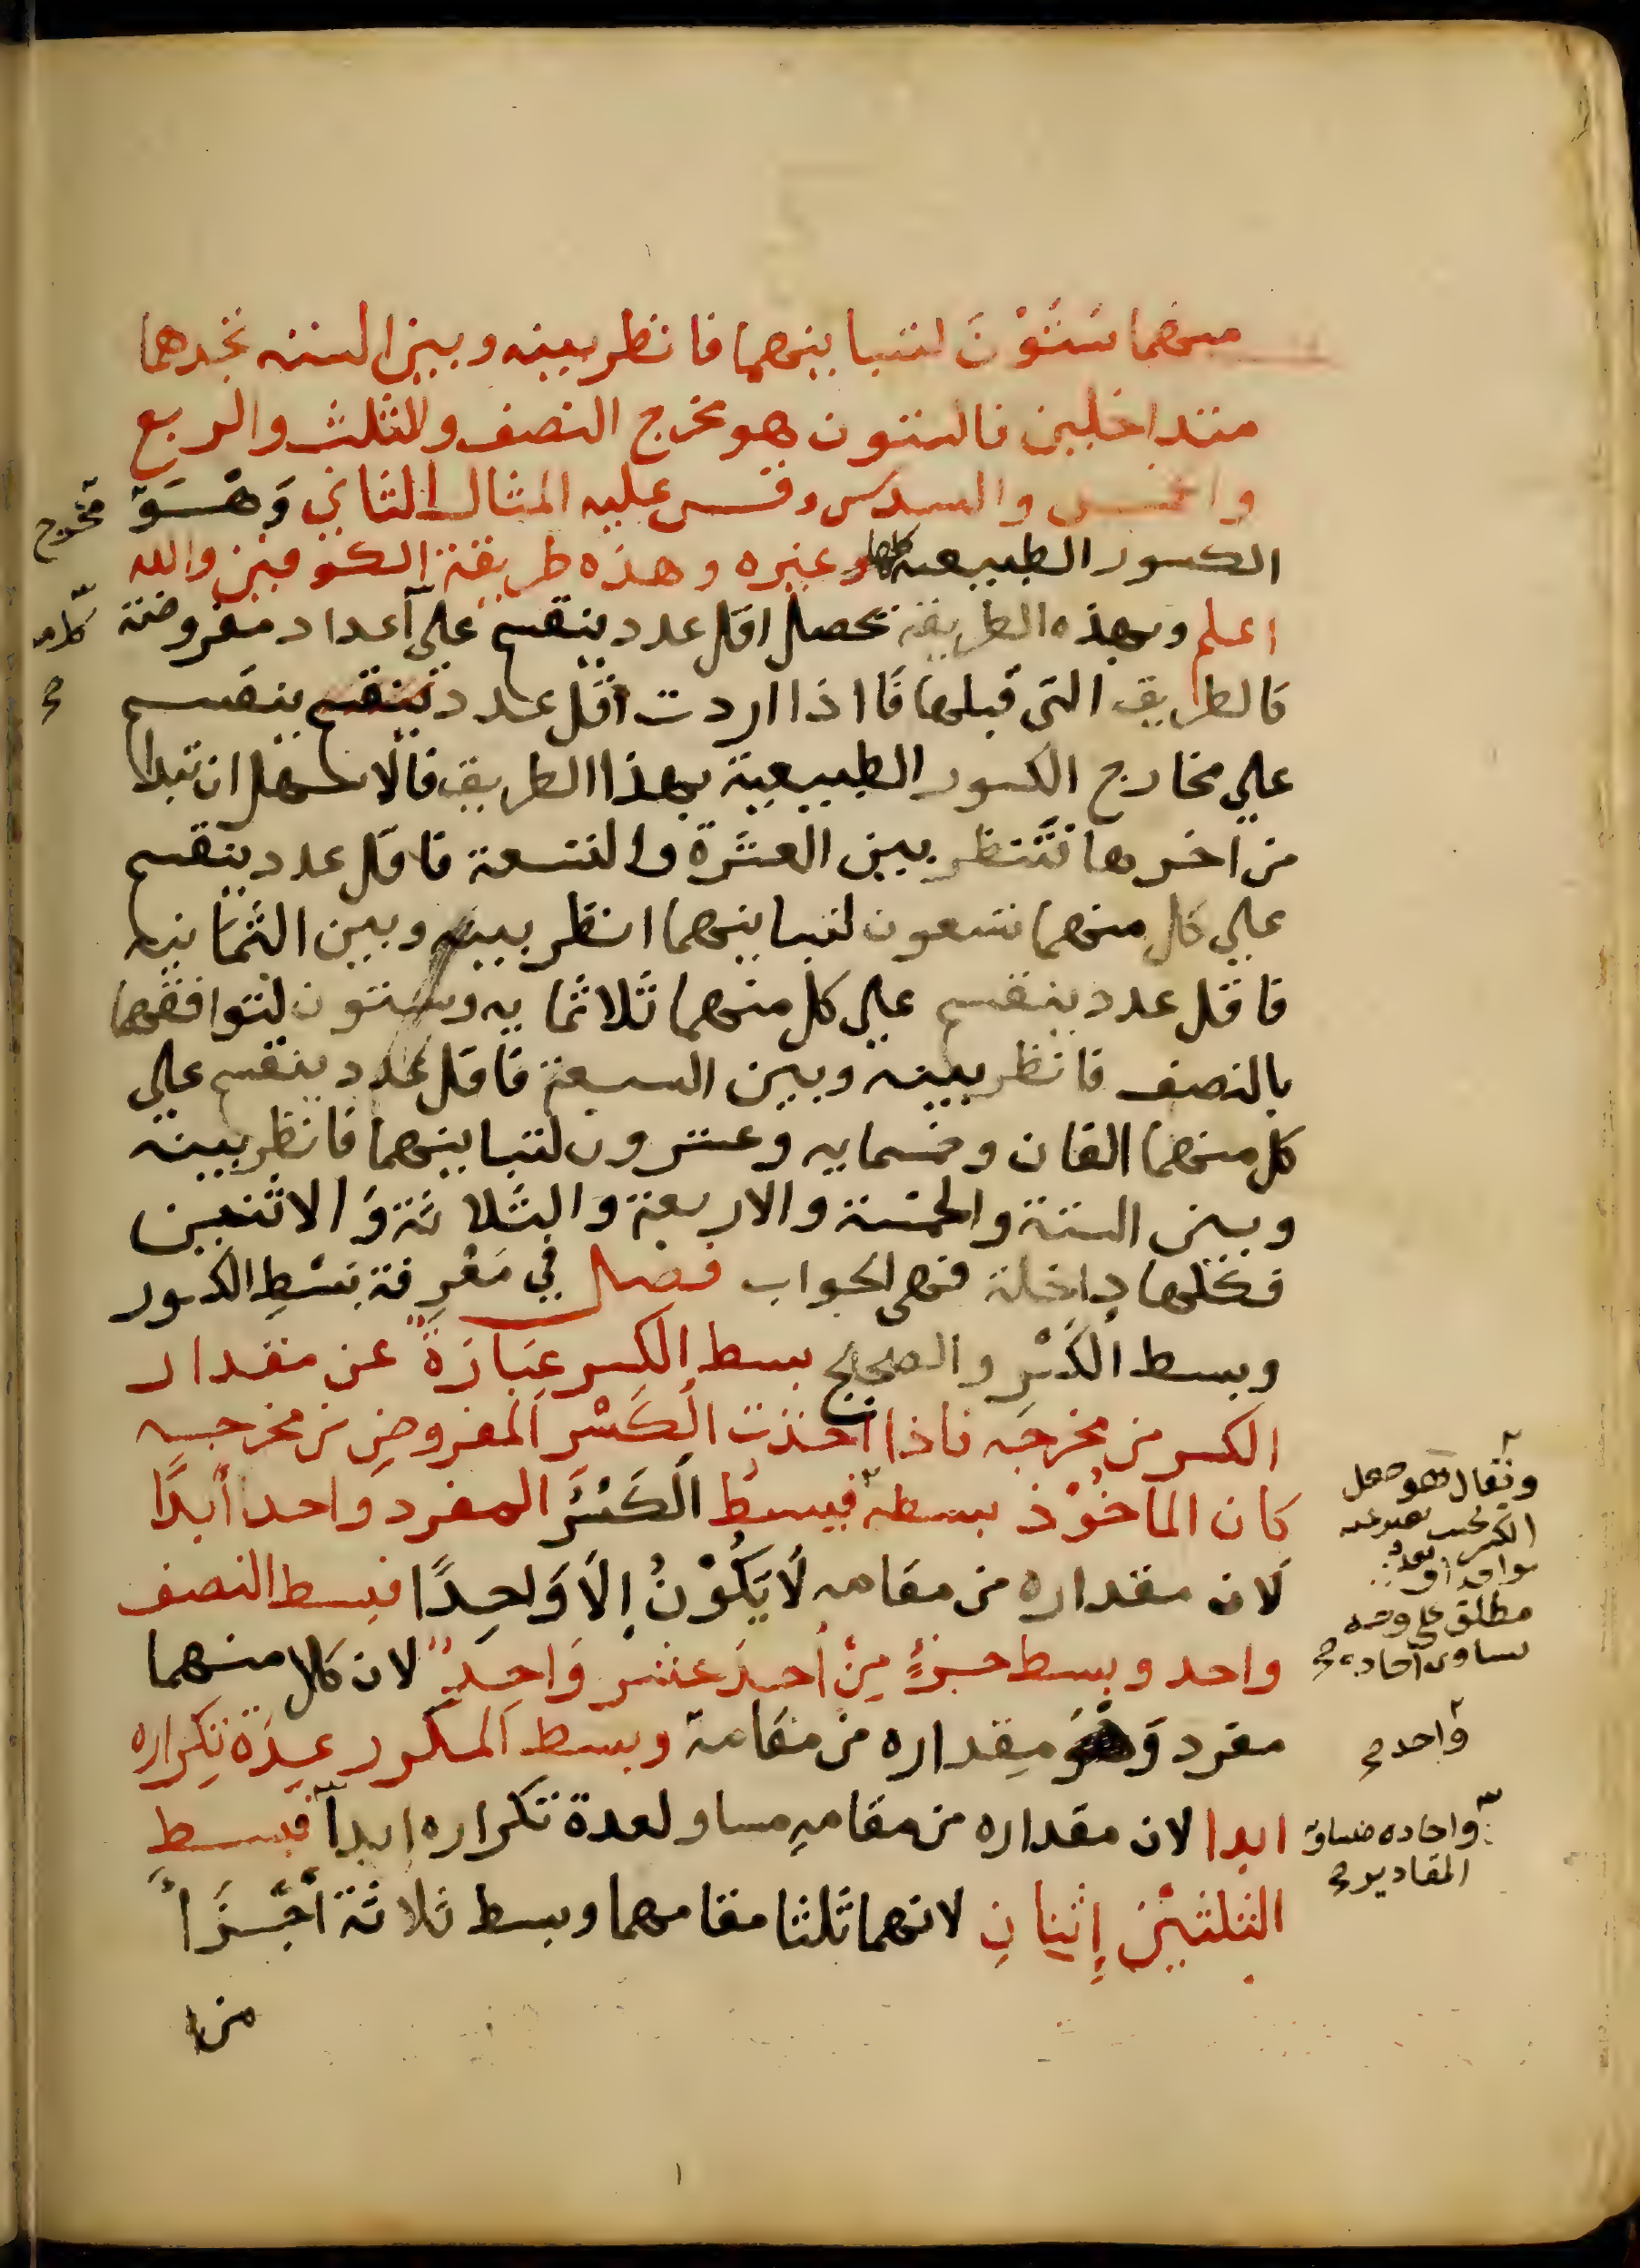 منهما ستون لتباينهما فانظر بينه وبين الستة تجدهما
متداخلين فالستون هو مخرج النصف والثلث والربع
والخمس والسدس وقس عليه المثال الثاني وَهُوَ مخرج
الكسور الطبيعية كلها وغيره وهذه طريقة الكوفيين والله
اعلم وبهذه الطريقة تحصل اقل عدد ينقسم على أعداد مفروضة
كالطريق التي قبلها فاذا اردت اقل عدد ينقسم
على مخارج الكسور الطبيعية بهذا الطريق فالاسهل ان تبدا
من اخرها فتنظر بين العشرة والتسعة فاقل عدد ينقسم
على كل منهما تسعون لتباينهما انظر بينه وبين الثمانيه
فاقل عدد ينقسم على كل منهما ثلاثمايه وستون لتوافقهما
بالنصف فانظر بينه وبين السبعة فاقل عدد ينقسم على
كل منهما الفان وخمسمايه وعشرون لتباينهما فانظر بينه
وبين الستة والخمسة والاربعة والثلاثة وَالاثنين
فكلها داخلة فهي الجواب فصل في مَعْرِفة بَسْطِ الكسور
وبسط الكَسْرِ والصحيح بسط الكسر عِبَارَةٌ عن مقدار
الكسر من مخرجه فاذا اخذت الكَسْرَ المفروضِ من مخرجه
كان الماخُوْذ بسطه فبسط الكَسْرَ المفرد واحد أبدًا
لان مقداره من مقامه لَا يَكُوْنُ اِلَّا وَاحِدًا فبسط النصف
واحد وبسط جزءٍ مِنْ أحدَ عشر وَاحِدٌ لان كلا منهما
مفرد وَهُوَ مِقداره من مقامه وبسط المكرر عِدَّة تكراره
ابدا لان مقداره من مقامهِ مساو لعدة تكراره ابدآ فبسط
الثلثيْن اِثنانِ لانهما ثلثا مقامهما وبسط ثلاثة أجْزَاءً
من
كلامه
ويقال هو
الكسر بحسب
مطلق على وجه
يساوى آحاده
واحد
وآحاده
المقادير
١